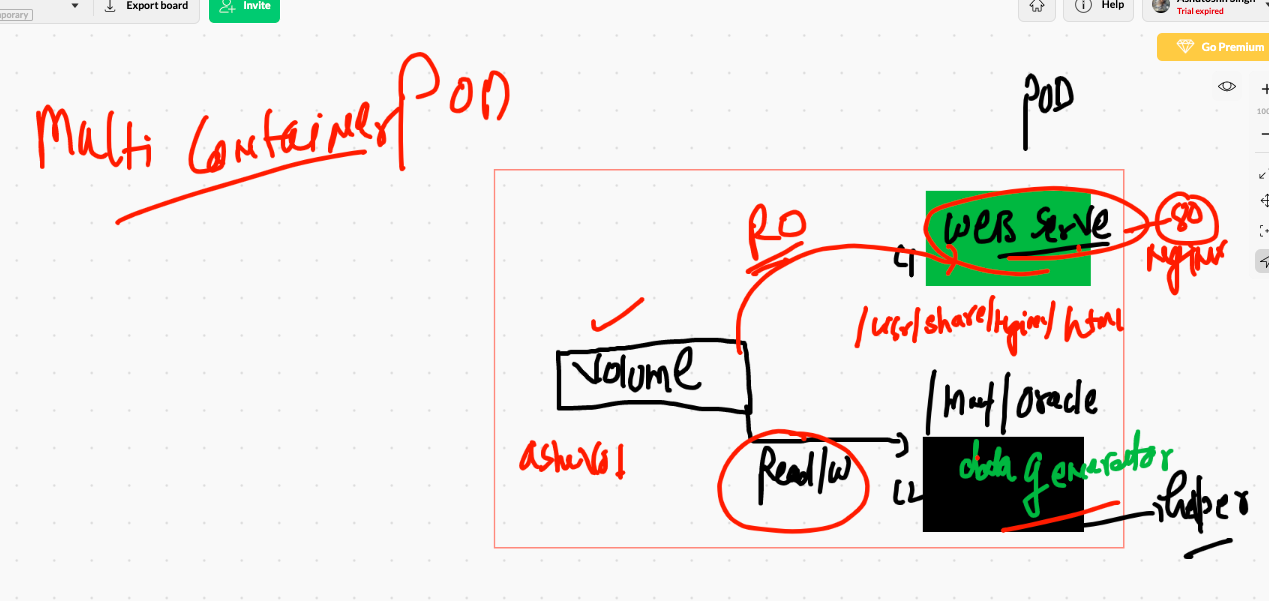 porary
Export board
Invite
Help
Trial expired
Go Premium
100
Multi Container POD
POD
RO
WEB Serve
80
C1
nginx
/usr/share/nginx/html
Volume
/mnt/oracle
ashvol
Read/W
data generator
C2
helper